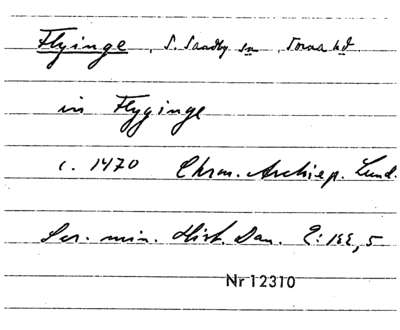 Flyinge, S. Sandby sn, Torna hd.
in Flyginge
c. 1470 Chron. Archiep. Lund.
Scr. min. Hist. Dan. 2:122, 5
Nr 12310